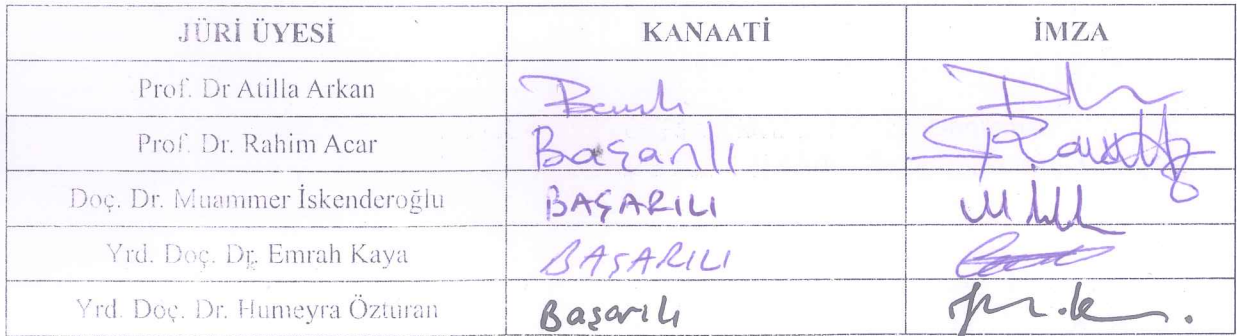 JÜRİ ÜYESİ KANAATİ İMZA
Prof. Dr Atilla Arkan
Prof. Dr. Rahim Acar Başarılı
Doç. Dr. Muammer İskenderoğlu BAŞARILI
Yrd. Doç. Dr. Emrah Kaya BAŞARILI
Yrd. Doç. Dr. Humeyra Özturan Başarılı